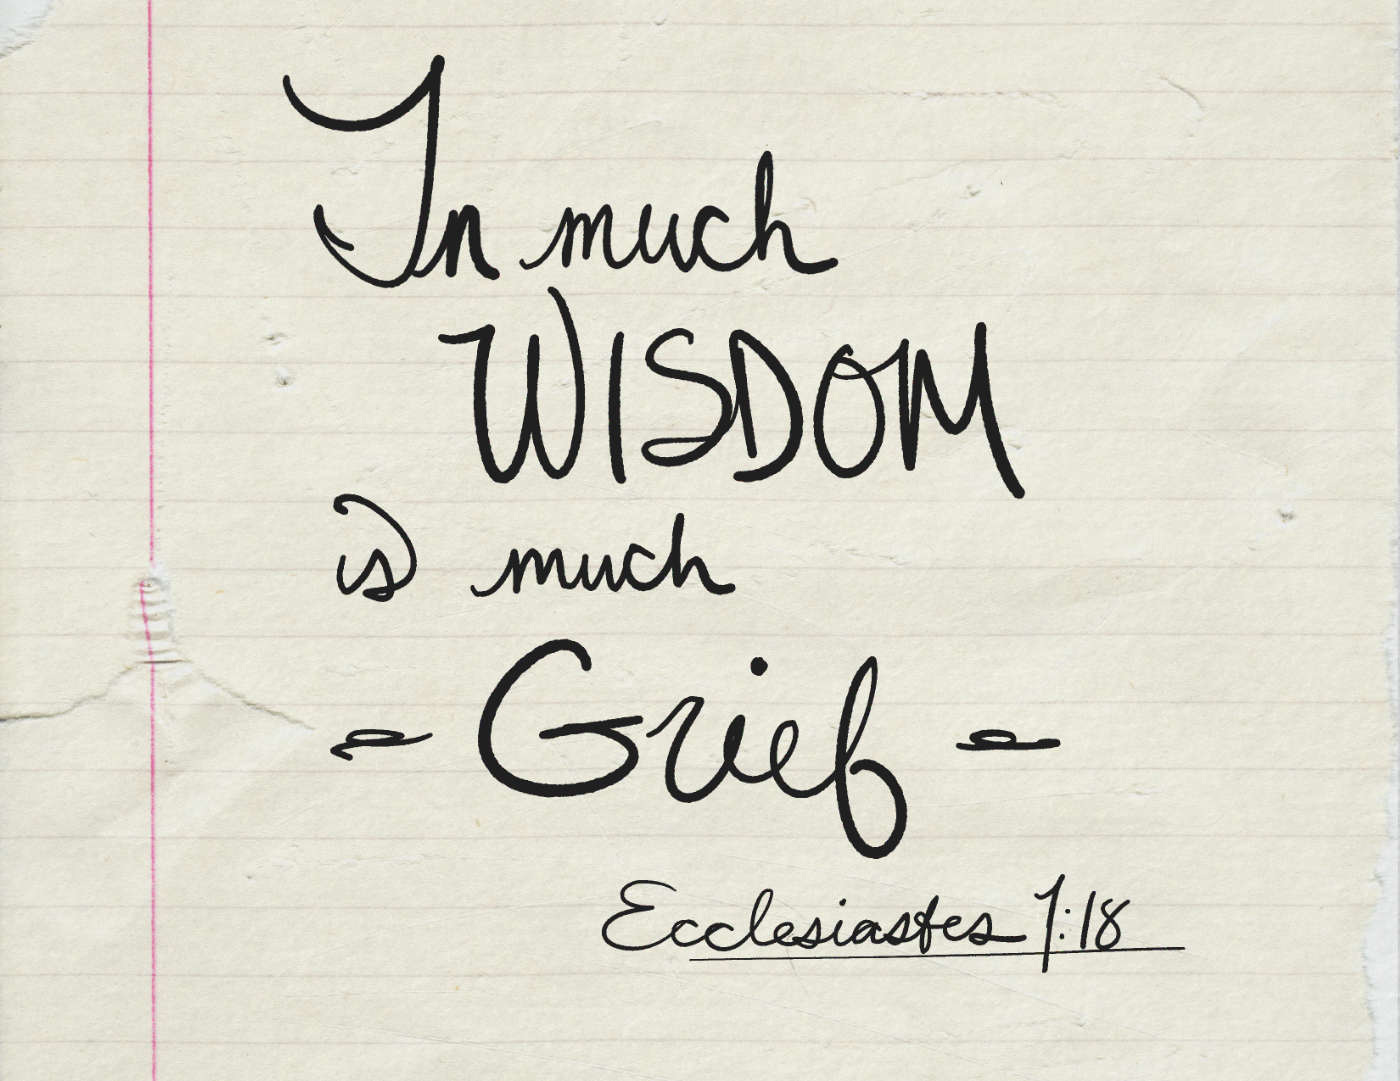 In much
WISDOM
is much
- Grief -
Ecclesiastes 1:18